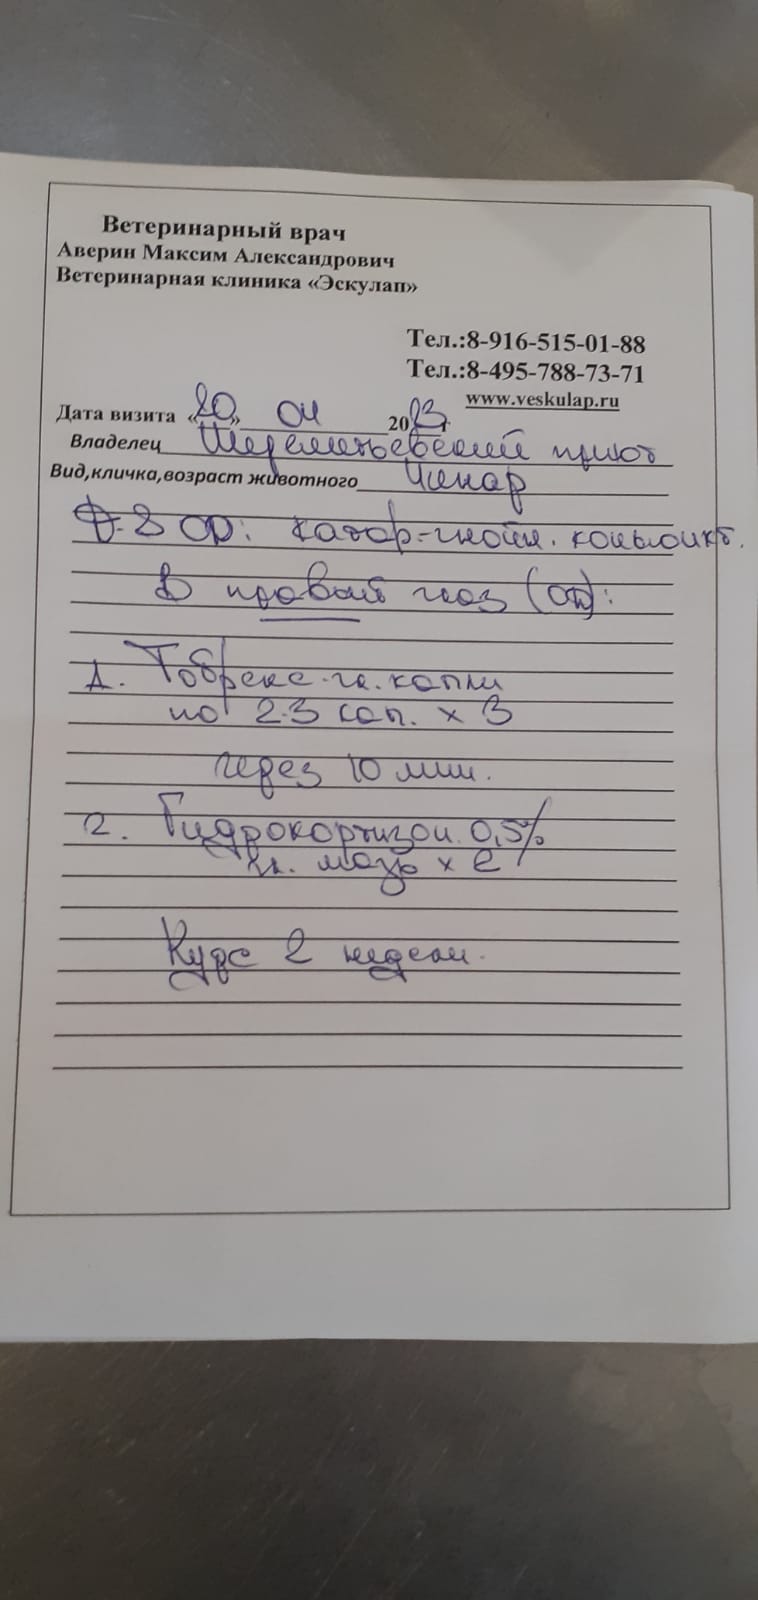 Ветеринарный врач
Аверин Максим Александрович
Ветеринарная клиника «Эскулап»
Тел.:8-916-515-01-88
Тел.:8-495-788-73-71
www.veskulap.ru
Дата визита «20» 04 2023г
Владелец Шереметьевский приют
Вид,кличка,возраст животного Чинар
D-S OD: катар-гнойн. коньюнкт.
В правый глаз (OD):
1. Тобрекс гл. капли
по 2-3 кап. x 3
через 10 мин.
2. Гидрокортизон 0,5%
гл. мазь x 2
Курс 2 недели.